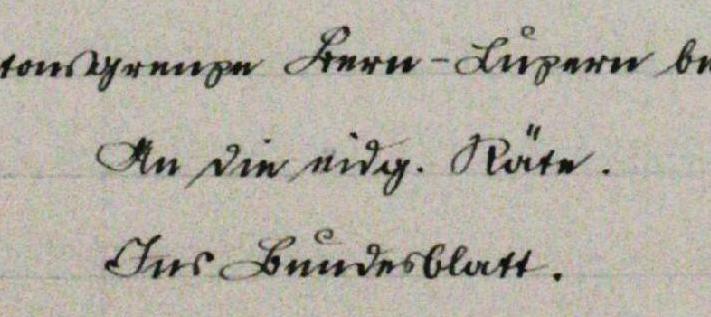 tonsgrenze Bern-Luzern be
An die eidg. Räte.
Ins Bundesblatt.